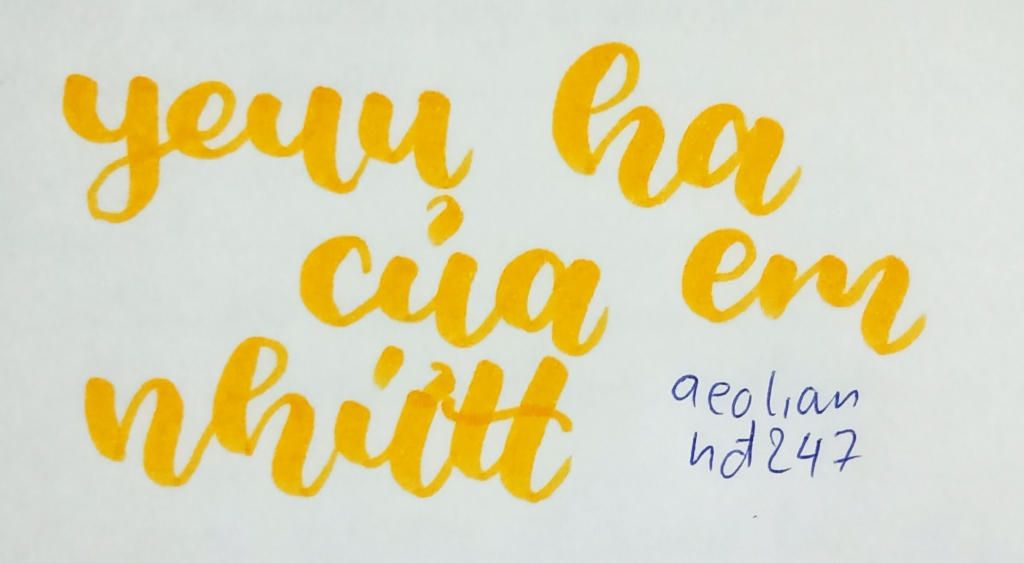 yeuu ha
của em
nhứtt
aeolian
hd247